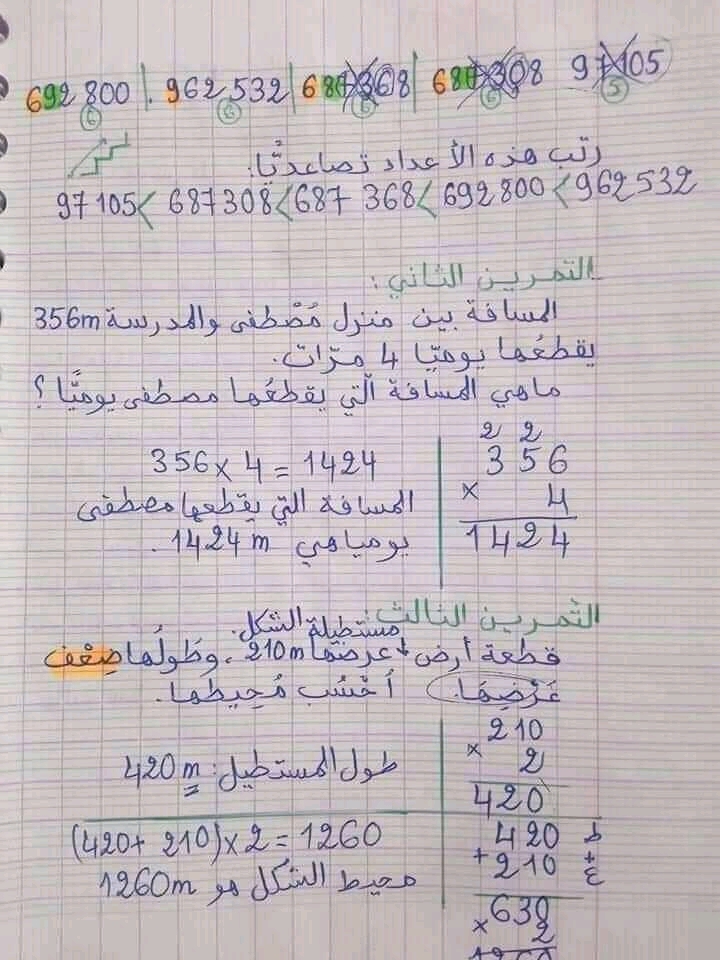 692 800 | . 962 532 | 687 368 | 687 308 97 105
6 6 6 6 5
رتب هذه الأعداد تصاعديًّا.
97 105 < 687308 < 687 368 < 692800 < 962532
التمرين الثاني:
المسافة بين منزل مُصْطفى والمدرسة 356m
يقطعُها يوميّا 4 مرّات.
ماهي المسافة الّتي يقطعُها مصطفى يوميًّا؟
2 2
356 x 4 = 1424
356
المسافة التي يقطعها مصطفى
x 4
يوميا هي 1424 m.
1424
التمرين الثالث:
مستطيلة الشكل.
قطعة أرض عرضها 210m، وطولُها ضِعْف
عَرْضِهَا. أحْسُب مُحِيطها.
210
x 2
طول المستطيل: 420 m
420
(420+ 210) x 2 = 1260
420 ط
+
+ 210 ع
محيط الشكل هو 1260m
630
x 2
1260